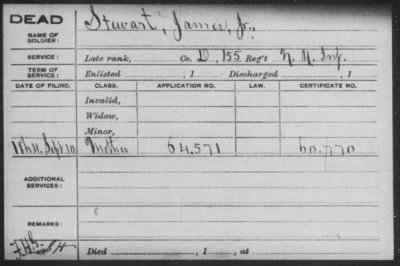 DEAD
NAME OF SOLDIER: Stewart, James, Jr.,
SERVICE: Late rank, Co. D, 155 Reg't N. Y. Inf.
TERM OF SERVICE: Enlisted , 1 Discharged , 1
DATE OF FILING. CLASS. APPLICATION NO. LAW. CERTIFICATE NO.
Invalid,
Widow,
Minor,
Sept 10 Mother 64,571 60,770
ADDITIONAL SERVICES:
REMARKS:
Died , 1 , at